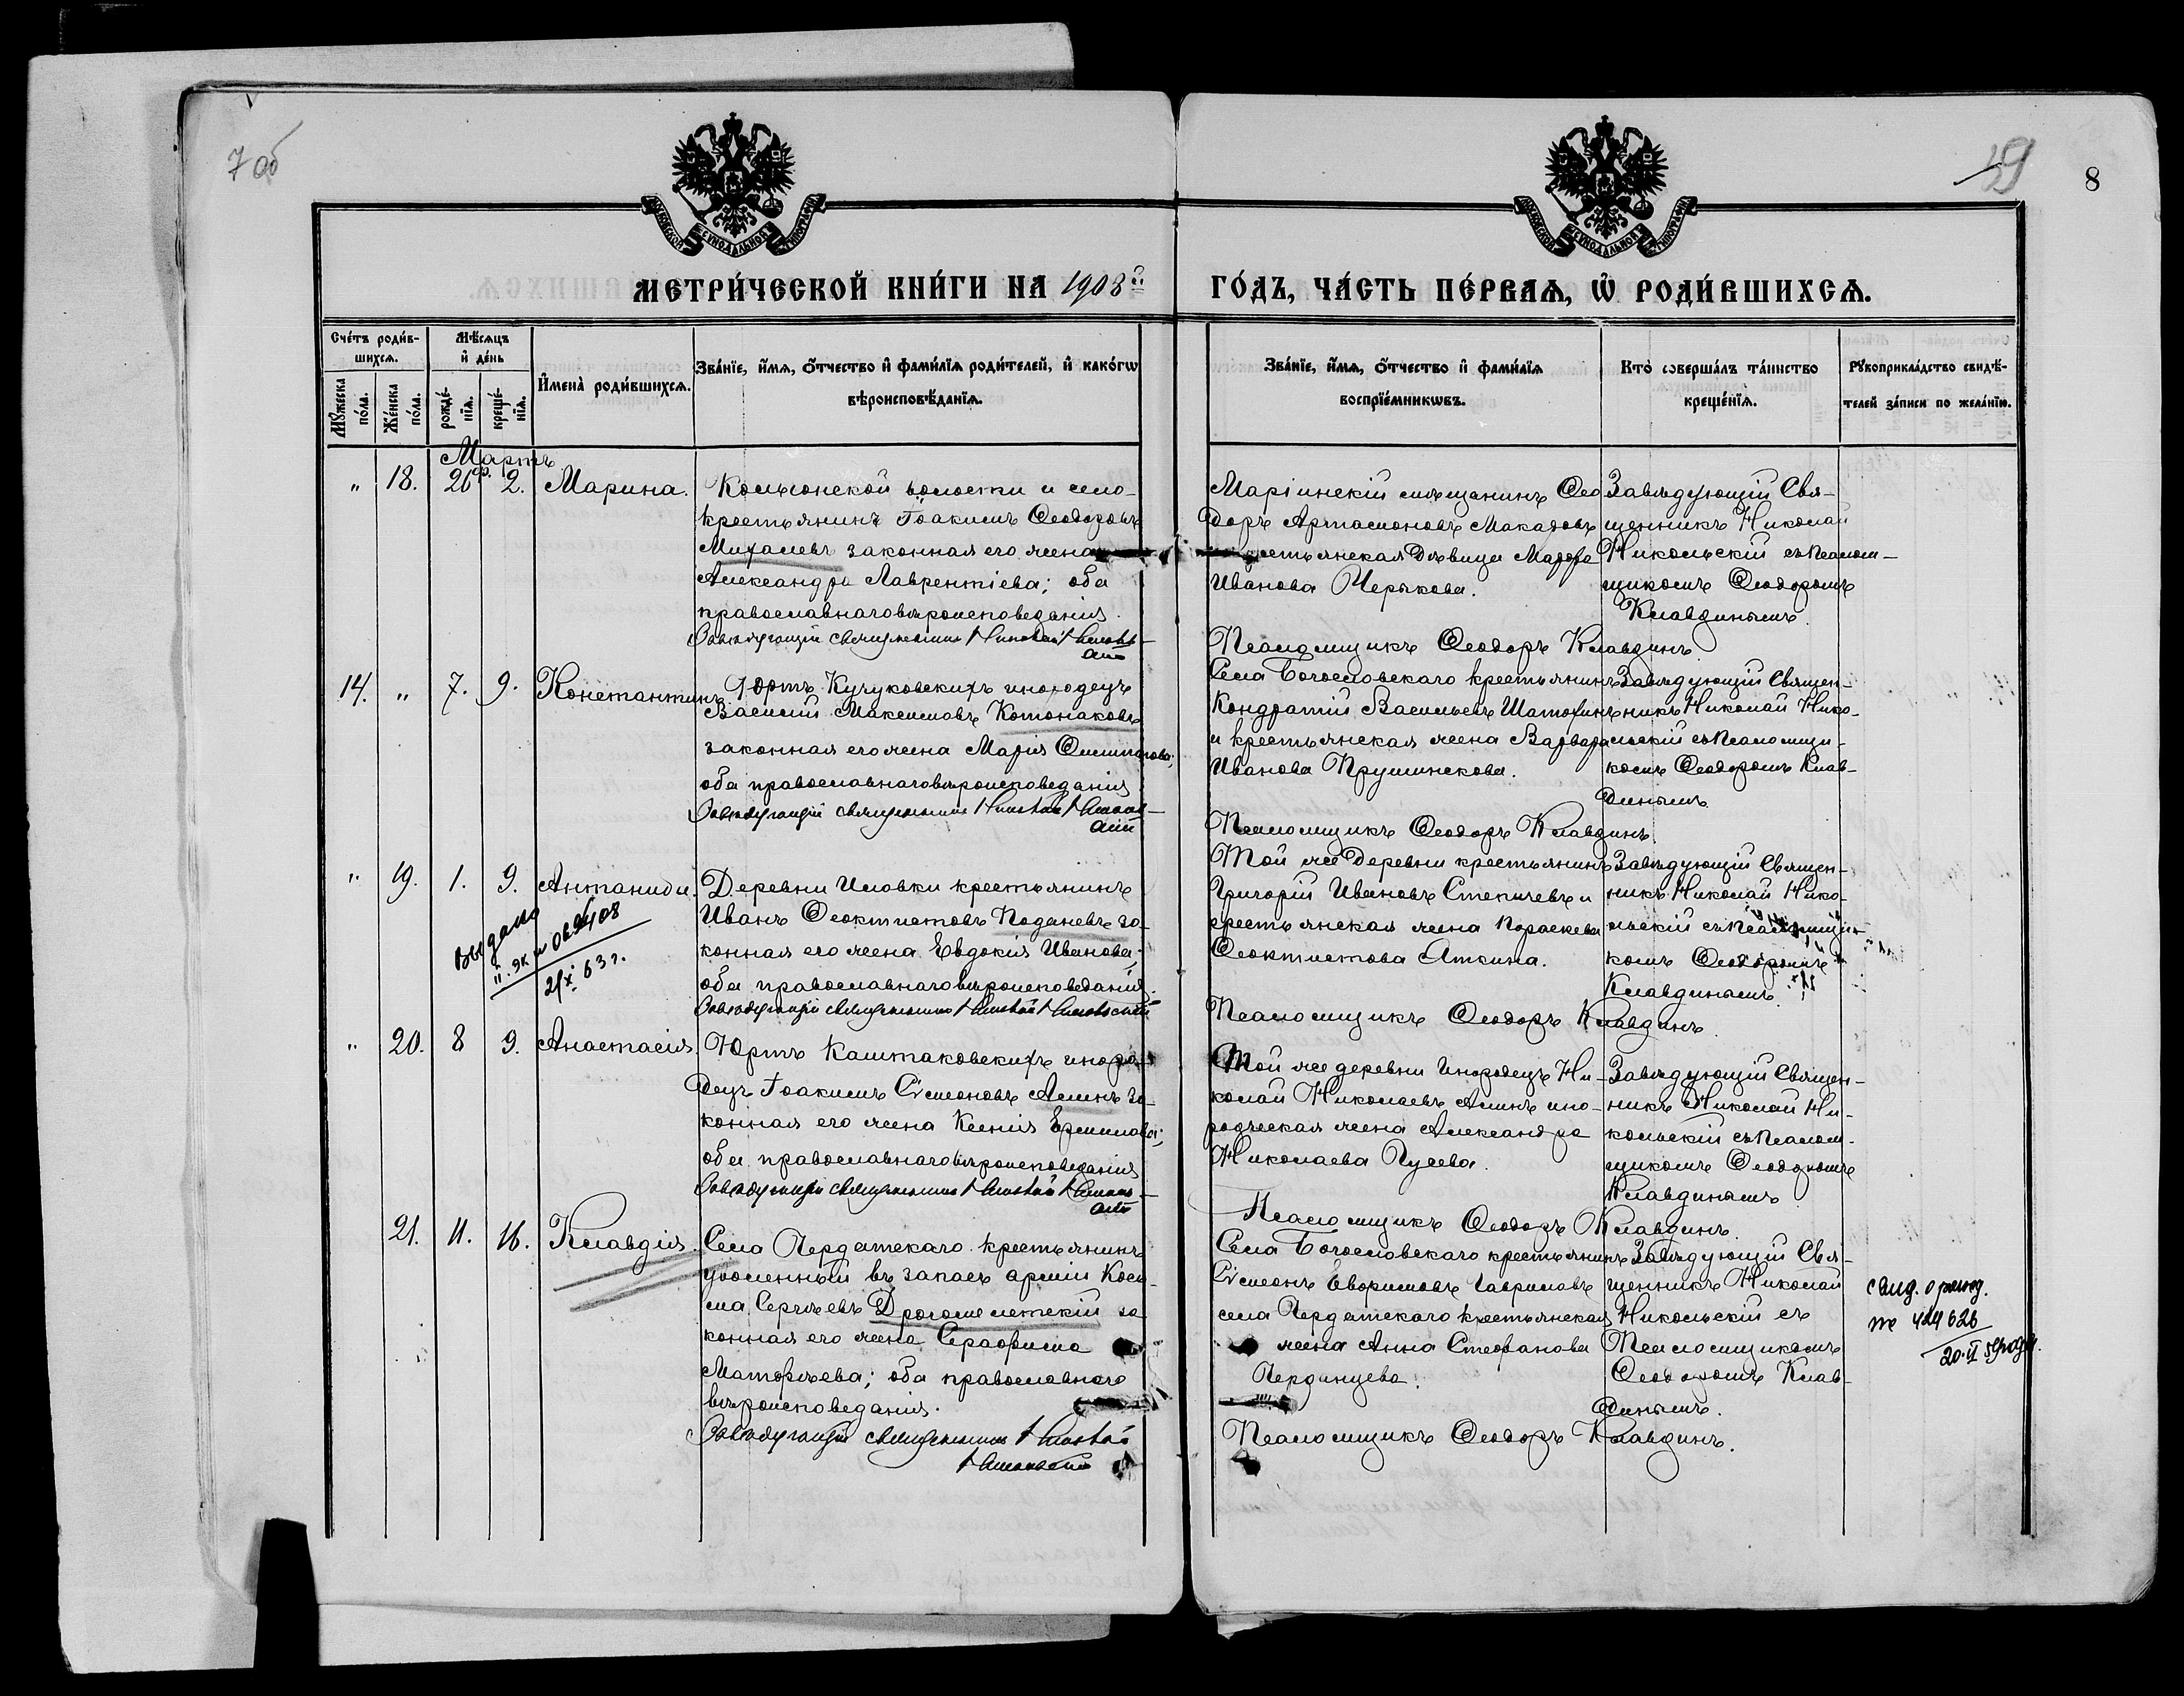 7 об
49
8
МЕТРИ́ЧЕСКОЙ КНИ́ГИ НА 1908й
ГО́ДЪ, ЧА́СТЬ ПЕ́РВАѦ, Ѽ РОДИ́ВШИХСѦ.
Сче́тъ роди́в-
шихсѧ.
Мѣ́сѧцъ
и҆ де́нь
Мꙋ́жеска по́ла.
Же́нска по́ла.
рожде́-
нїѧ.
креще́-
нїѧ.
И҆мена̀ роди́вшихсѧ.
Зва́нїе, и҆́мѧ, ѻ҆́тчество и҆ фами́лїѧ роди́телей, и҆ како́гѡ
вѣроисповѣ́данїѧ.
Зва́нїе, и҆́мѧ, ѻ҆́тчество и҆ фами́лїѧ
воспрїе́мникѡвъ.
Кто̀ соверша́лъ та́инство
креще́нїѧ.
Рꙋкоприкла́дство свидѣ́-
телей за́писи по жела́нїю.
Мартъ
" 18. 26 ф. 2. Марина.
волости и село
крестьянинъ Іоакимъ Ѳеодоровъ
Михалевъ законная его жена
Александра Лаврентіева; оба
православнаго вѣроисповеданія.
Завѣдующій священникъ Николай Николь-
скій
Маріинскій мѣщанинъ Ѳео
доръ Артамоновъ Макаровъ
крестьянская дѣвица Марѳа
Иванова Черыкова.
Псаломщикъ Ѳеодоръ Клавдинъ.
Завѣдующій Свя-
щенникъ Николай
Никольскій съ псалом-
щикомъ Ѳеодоромъ
Клавдинымъ.
14. " 7. 9. Константинъ.
Юртъ Кучуковскихъ инородецъ
Василій Максимовъ Котонаковъ
законная его жена Марія
оба православнаго вѣроисповеданія
Завѣдующій священникъ Николай Николь-
скій
Села Богословскаго крестьянинъ
Кондратій Васильевъ Шатохинъ
и крестьянская жена Варвара
Иванова Прушинскова.
Псаломщикъ Ѳеодоръ Клавдинъ.
Завѣдующій Священ-
никъ Николай Нико-
льскій съ псаломщи-
комъ Ѳеодоромъ Клав-
динымъ.
" 19. 1. 9. Антанида.
Выдано
21/X 63 г.
Деревни Иловки крестьянинъ
Иванъ Ѳеоктистовъ Поданевъ за-
конная его жена Евдокія Иванова;
оба православнаго вѣроисповеданія.
Завѣдующій священникъ Николай Никольскій
Той же деревни крестьянинъ
Григорій Ивановъ и
крестьянская жена Параскева
Ѳеоктистова Аткина.
Псаломщикъ Ѳеодоръ Клавдинъ.
Завѣдующій Священ-
никъ Николай Нико-
льскій съ псаломщи-
комъ Ѳеодоромъ
Клавдинымъ.
" 20. 8 9. Анастасія.
Юртъ Каштаковскихъ иноро-
децъ Іоакимъ Сѵмеоновъ Асминъ за-
конная его жена Ксенія Ермилова;
оба православнаго вѣроисповеданія
Завѣдующій священникъ Николай Николь-
скій
Той же деревни инородецъ Ни-
колай Николаевъ ино-
родческая жена Александра
Николаева Гусева.
Псаломщикъ Ѳеодоръ Клавдинъ.
Завѣдующій Священ-
никъ Николай Ни-
кольскій съ псалом-
щикомъ Ѳеодоромъ
Клавдинымъ
21. 11. 16. Клавдія.
Села Пердятскаго крестьянинъ
уволенный въ запасъ арміи Кось-
ма Сергѣевъ Драгомелетскій за
конная его жена Серафима
Матѳѣева; оба православнаго
вѣроисповеданія.
Завѣдующій священникъ Николай
Никольскій
Села Богословскаго крестьянинъ
Сѵмеонъ Евфимовъ Гавриловъ
села Пердятскаго крестьянская
жена Анна Стефанова
Пердинцева.
Псаломщикъ Ѳеодоръ Клавдинъ.
Завѣдующій Свя-
щенникъ Николай
Никольскій съ
Псаломщикомъ
Ѳеодоромъ Клав-
динымъ.
свид. о рожд.
424626
20.VI